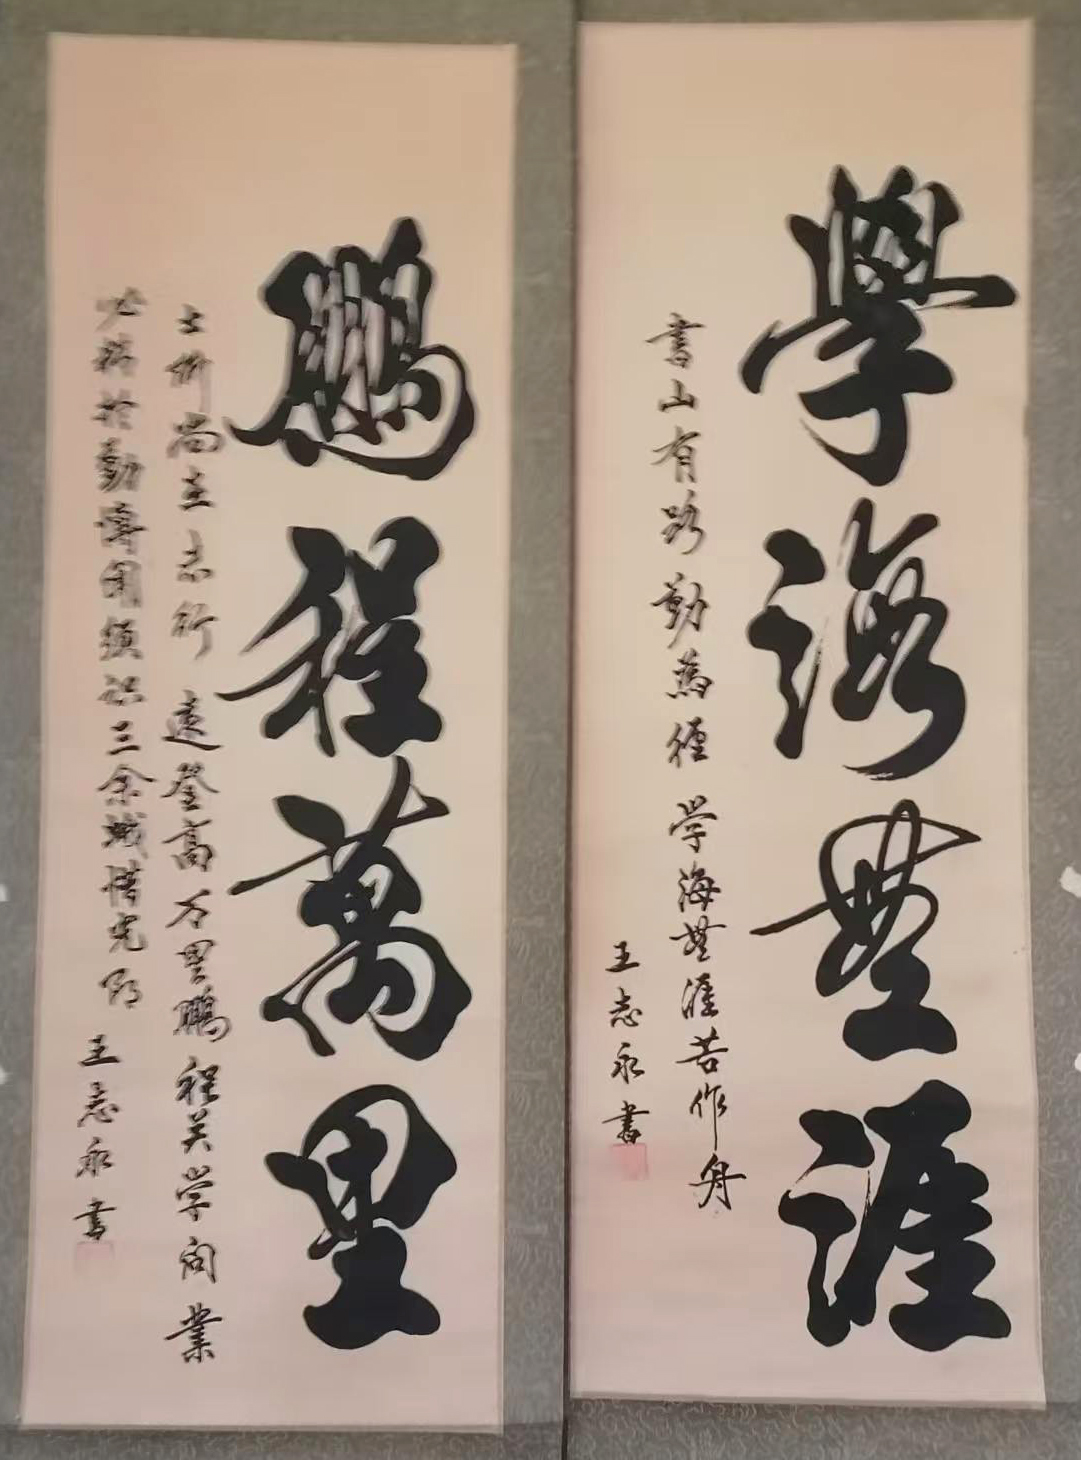 學海無涯
書山有路勤為徑学海無涯苦作舟
王志永書
鵬程萬里
士所尚在志行遠登高万里鵬程关学问業
必精於勤博闻须识三余味惜光阴
王志永書